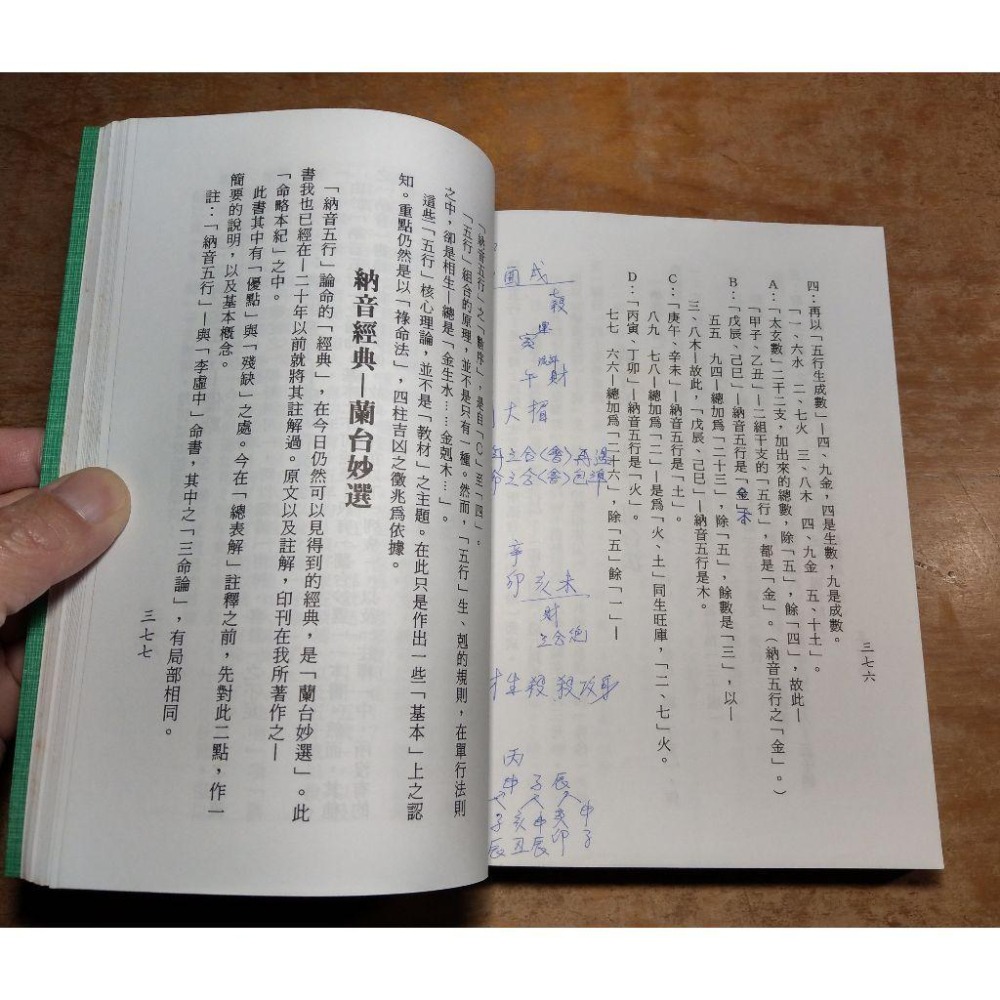 三七六
四：再以「五行生成數」—四、九金，四是生數，九是成數。
「一、六水　二、七火　三、八木　四、九金　五、十土」。
A：「太玄數」二干二支，加出來的總數，除「五」，餘「四」，故此—
「甲子、乙丑」—二組干支的「五行」，都是「金」。（納音五行之「金」。）
B：「戊辰、己巳」—納音五行是「金」木
五五　九四—總加爲「二三」，除「五」，餘數是「三」，以—
三、八木—故此，「戊辰、己巳」—納音五行是木。
C：「庚午、辛未」—納音五行是「土」。
八九　七八—總加爲「三二」—是爲「火、土」同生旺庫，「二、七」火。
D：「丙寅、丁卯」—納音五行是「火」。
七七　六六—總加爲「二六」，除「五」餘「一」—
酉戌
七殺
午財
大榴
辛
卯亥未
財
殺殺攻身
丙
申子辰
子亥申
辰丑辰卯子
「納音五行」之「數序」，是自「C」至「四」。
「五行」組合的原理，並不是只有一種。然而，「五行」生、剋的規則，在單行法則
之中，卻是相生—總是「金生水……金剋木…」。
這些「五行」核心理論，並不是「教材」之主題。在此只是作出一些「基本」上之認
知。重點仍然是以「祿命法」，四柱吉凶之徵兆爲依據。
納音經典—蘭台妙選
「納音五行」論命的「經典」，在今日仍然可以見得到的經典，是「蘭台妙選」。此
書我也已經在—二十年以前就將其註解過。原文以及註解，印刊在我所著作之—
「命略本紀」之中。
此書其中有「優點」與「殘缺」之處。今在「總表解」註釋之前，先對此二點，作一
簡要的說明，以及基本概念。
註：「納音五行」—與「李虛中」命書，其中之「三命論」，有局部相同。
三七七